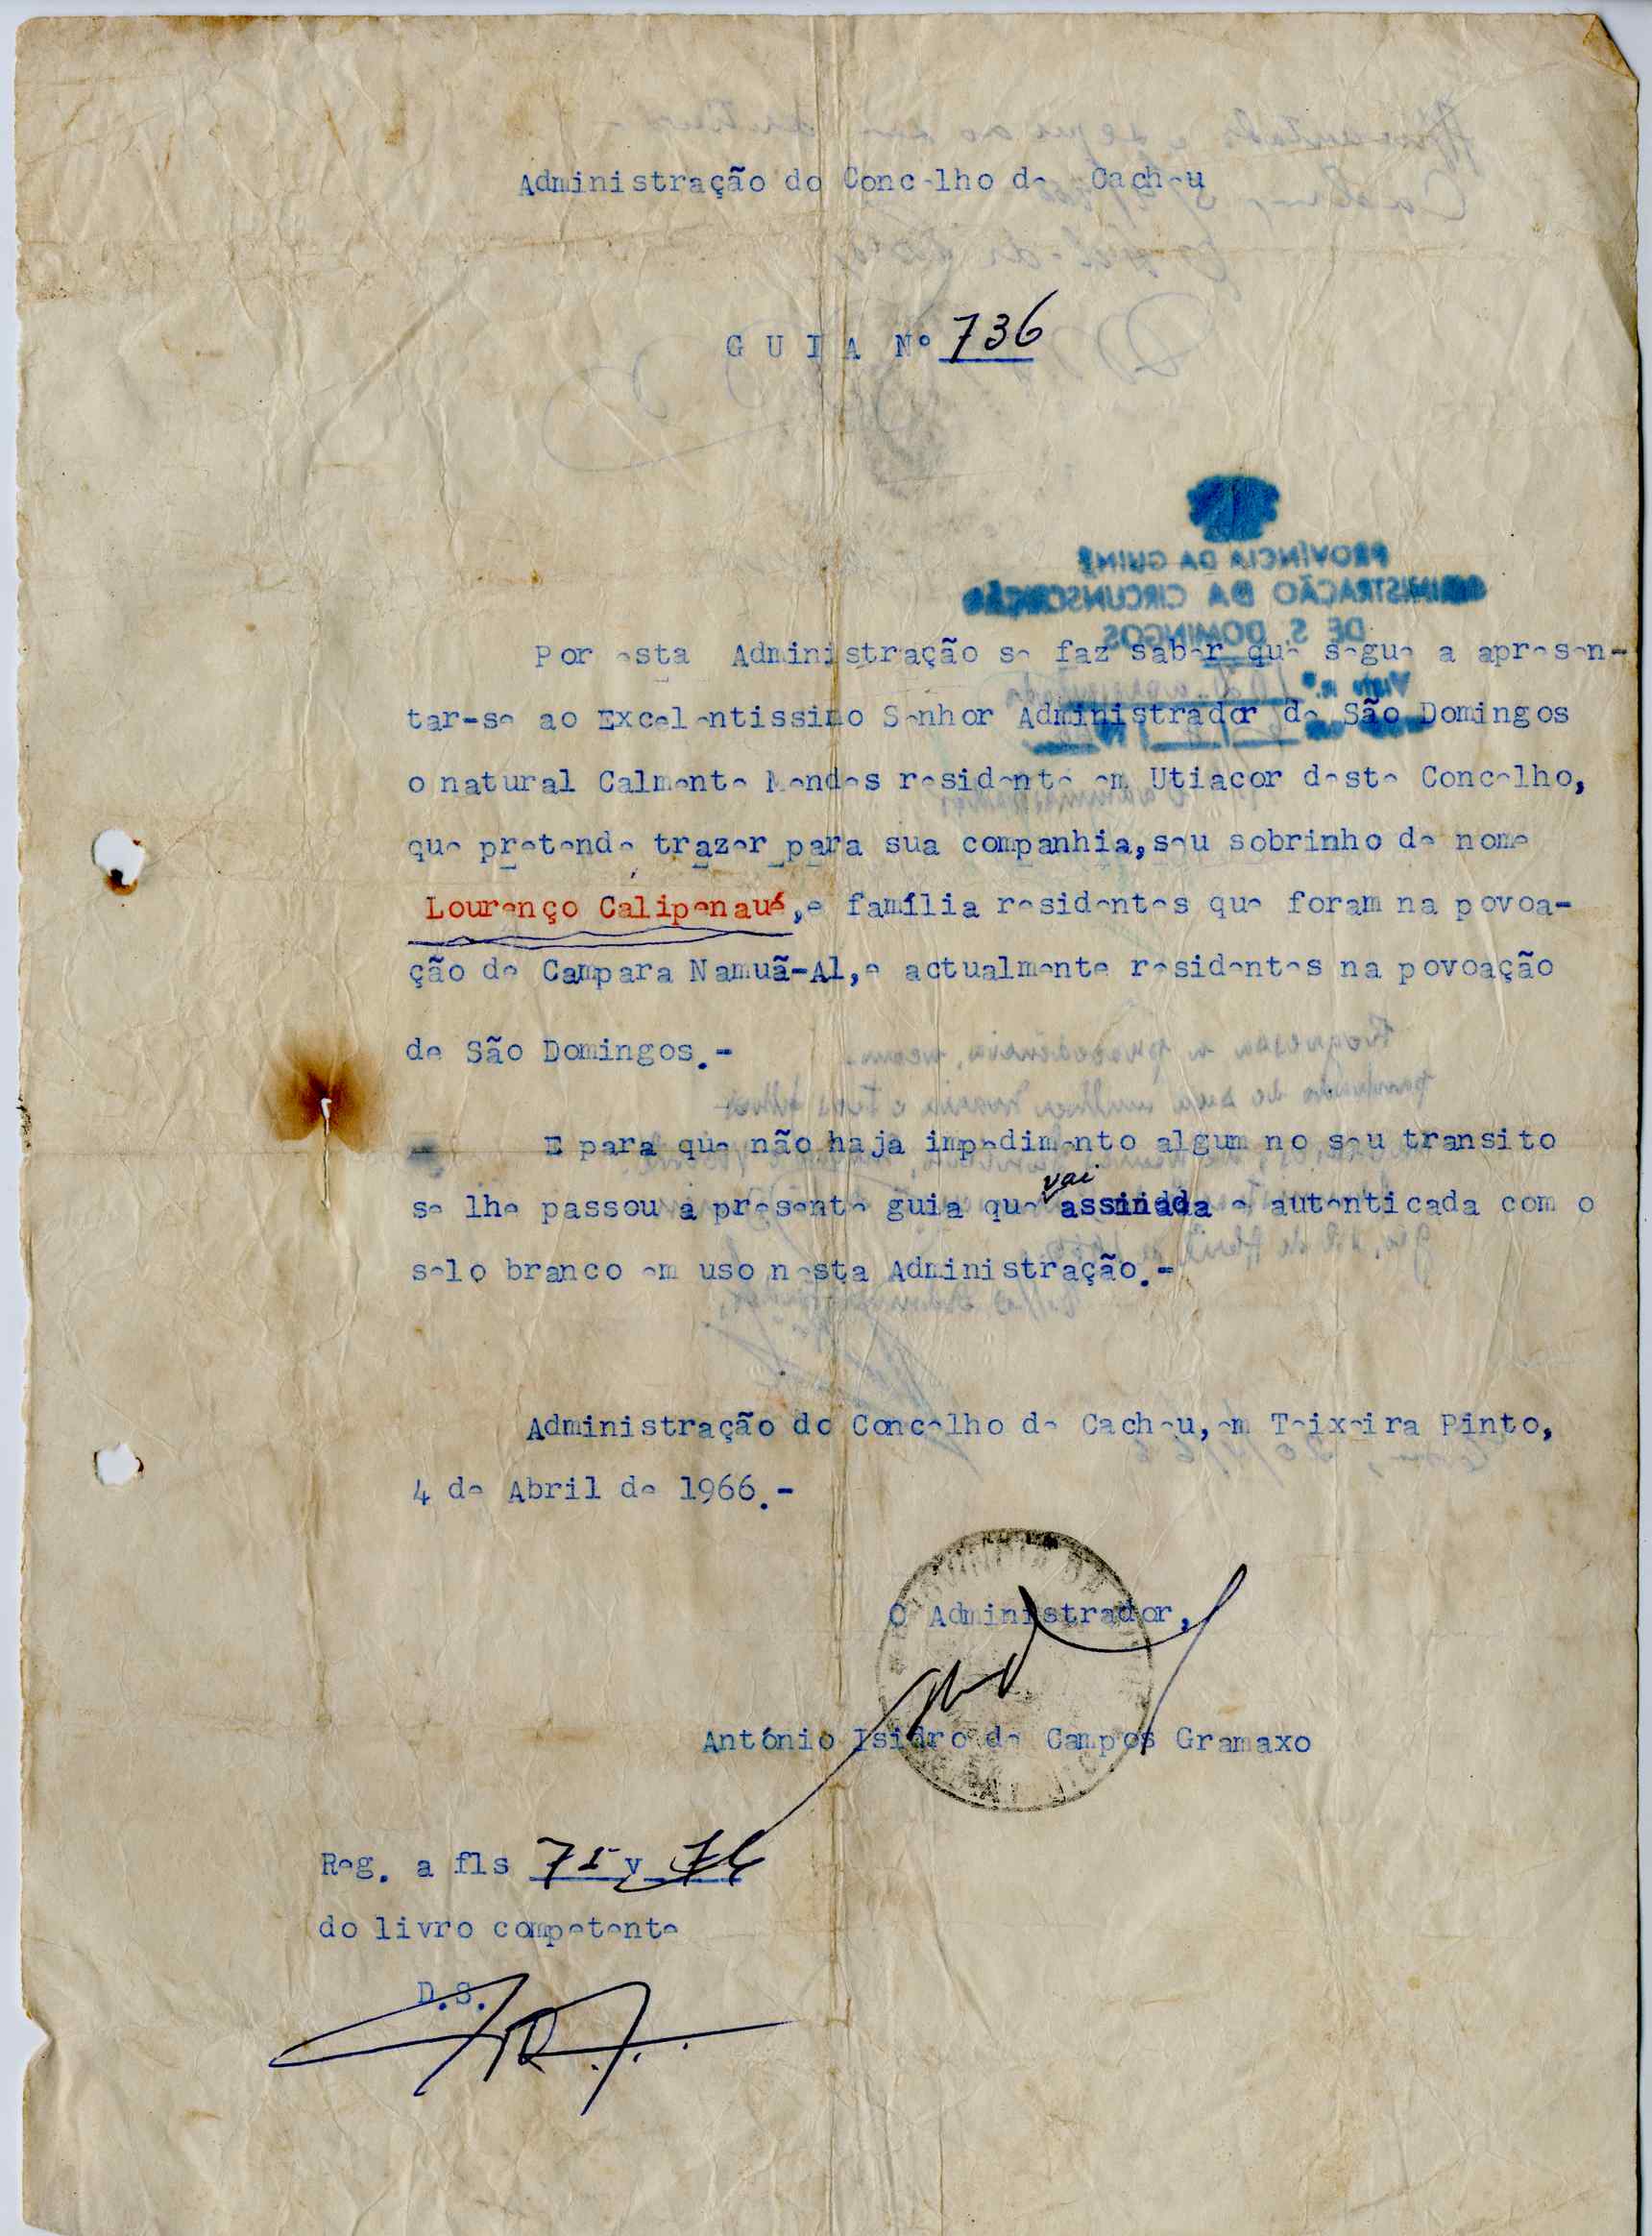 Administração do Concelho de Cacheu
GUIA Nº 736
PROVÍNCIA DA GUINÉ
ADMINISTRAÇÃO DA CIRCUNSCRIÇÃO
DE S. DOMINGOS
Por esta Administração se faz saber que segue a apresen-
tar-se ao Excelentissimo Senhor Administrador de São Domingos
o natural Calmente Mendes residente em Utiacor deste Concelho,
que pretende trazer para sua companhia, seu sobrinho de nome
Lourenço Calipenaué, e família residentes que foram na povoa-
ção de Campara Namuã-Al, e actualmente residentes na povoação
de São Domingos.-
E para que não haja impedimento algum no seu transito
se lhe passou a presente guia que vai assinada e autenticada com o
selo branco em uso nesta Administração.-
Administração do Concelho de Cacheu, em Teixeira Pinto,
4 de Abril de 1966.-
O Administrador,
António Isidro de Campos Gramaxo
Reg. a fls 75 v 76
do livro competente
D.S.